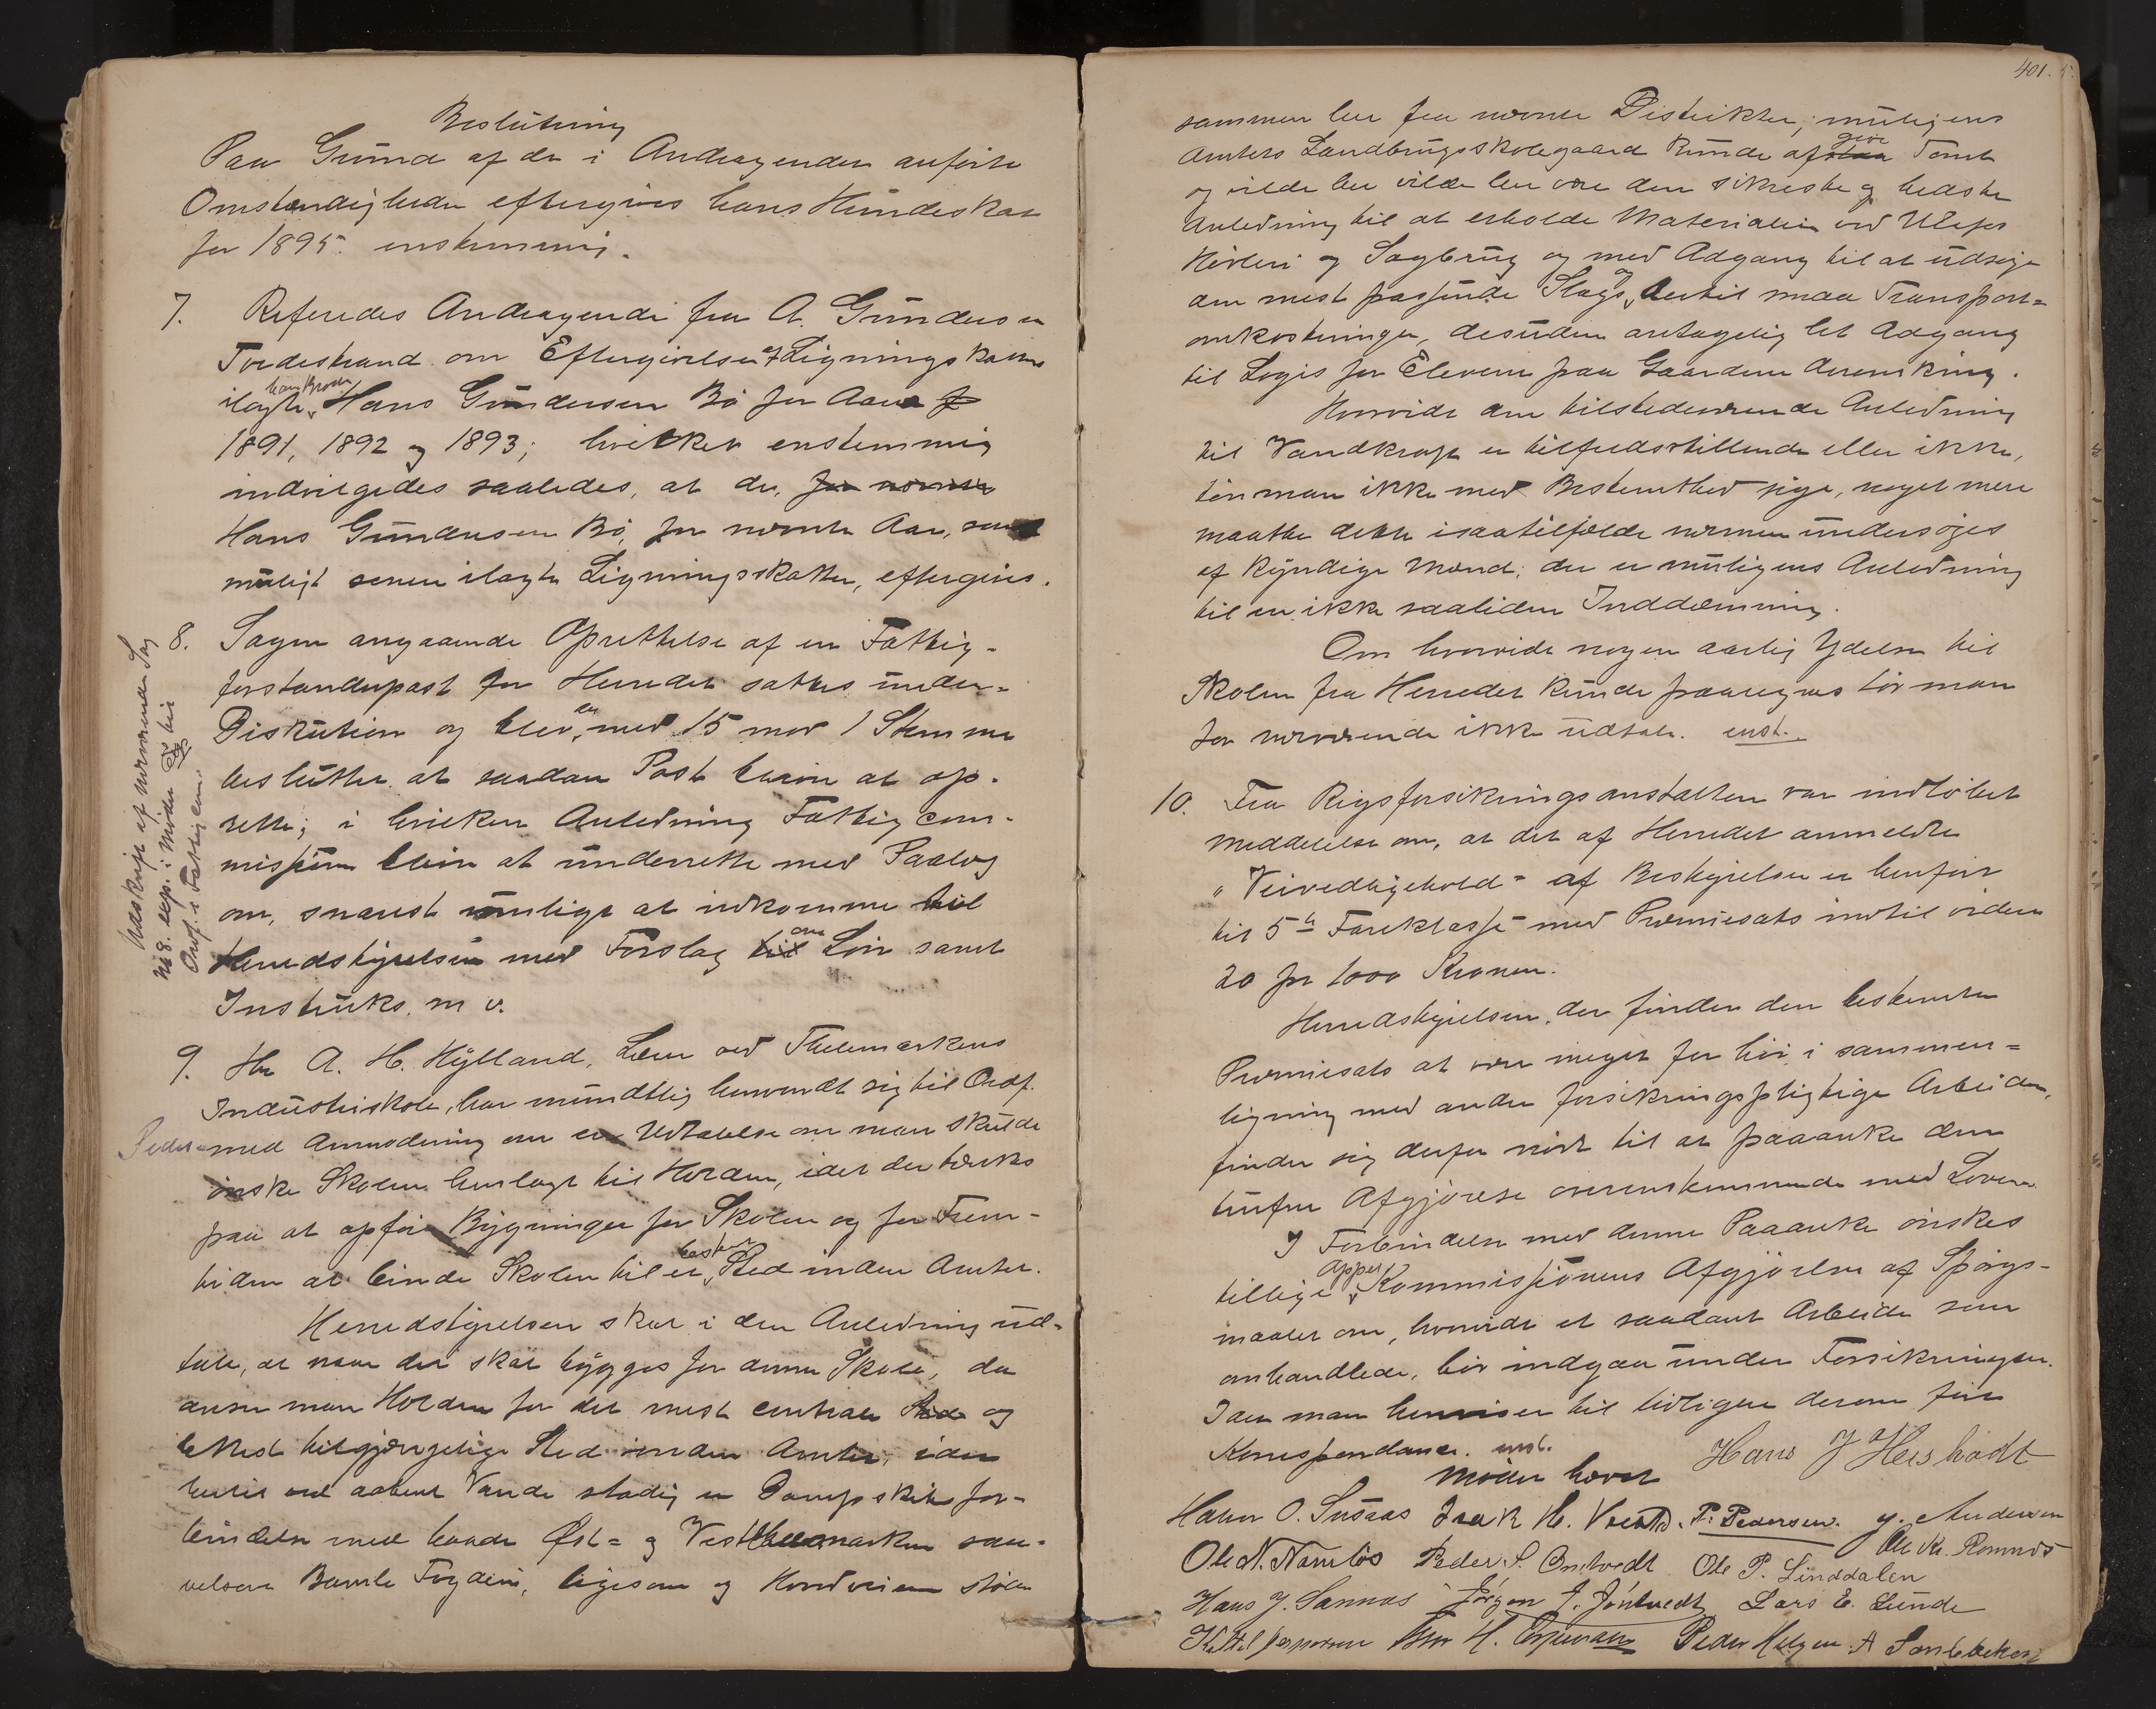 Beslutning
Paa Grund af de i Andragenden anførte
Omstændigheder eftergives hans Hundeskat
for 1895. enstemmig.
7. Refereredes Andragende fra A. Gundersen
Tvedestrand om Eftergivelse af Ligningsskatten
ilagte hans Broder Hans Gundersen Bö for Aarene
1891, 1892 og 1893; hvilket enstemmig
indvilgedes saaledes, at de, for nævnte
Hans Gundersen Bö, for nævnte Aar, samt
muligt senere ilagte Ligningsskatter, eftergives.
8. Sagen angaaende Oprettelse af en Fattig-
forstanderpost for Herredet sattes under
Diskution og blev, med 15 mod 1 Stemme
besluttet at saadan Post bliver at op-
rette; i hvilken Anledning Fattigcom-
missionen bliver at underrette med Paalæg
om, snarest muligt at indkomme til
Herredsstyrelsen med Forslag om Løn samt
Instruks. m v.
Udskrift af nærværende Sag
No 8. exp. i Møder til
Ordf. i Fattigkom.
9. Hr A. H. Hylland, Lærer ved Thelemarkens
Industriskole, har mundtlig henvendt sig til Ordf.
med Anmodning om en Udtalelse om man skulde
ønske Skolen henlagt til Holden, idet der tænkes
paa at opføre Bygninger for Skolen og for Frem-
tiden at binde Skolen til et bestemt Sted inden Amtet.
Herredsstyrelsen skal i den Anledning ud-
tale, at naar der skal bygges for denne Skole, da
anser man Holden for det mest centrale og
lettest tilgjængelige Sted inden Amtet, idet
hertil ved aabent Vande stadig er Dampskibsfor-
bindelse med baade Øst- og Vestthelemarken saa-
velsom Bamle Fogderi, ligesom og Hovedveiene støde
401.
sammen her fra nævnte Distrikter; muligens
Amtets Landbrugsskolegaard kunde afgive Tomt
og vilde her være den sikreste og bedste
Anledning til at erholde Materialier ved Ulefos
Høvleri og Sagbrug og med Adgang til at udsøge
den mest passende Slags, og dertil smaa Transport=
omkostninger, desuden antagelig let Adgang
til Logis for Eleverne paa Gaardene deromkring.
Hvorvidt den tilstedeværende Anledning
til Vandkraft er tilfredsstillende eller ikke,
tør man ikke med Bestemthed sige, noget mere
maatte dette isaatilfælde nærmere undersøges
af kyndige Mænd; der er muligens Anledning
til en ikke saaliden Inddæmning.
Om hvorvidt nogen aarlig Ydelse til
Skolen fra Herredet kunde paaregnes tør man
for nærværende ikke udtale. enst.
10. Fra Rigsforsikringsanstalten var indløbet
Meddelelse om, at det af Herredet anmeldte
"Veivedligehold" af Bestyrelsen er henført
til 5te Fareklasse med Præmiesats indtil videre
20 pr 1000 Kroner.
Herredsstyrelsen, der finder den bestemte
Præmiesats at være meget for høi i sammen=
ligning med andre forsikringspligtige Arbeider,
finder sig derfor nødt til at paaanke den
trufne Afgjørelse overensstemmende med Loven.
I Forbindelse med denne Paaanke ønskes
tillige Appel Kommissionens Afgjørelse af Spørgs-
maalet om, hvorvidt et saadant Arbeide som
omhandlede, bør indgaa under Forsikringen.
Idet man henviser til tidligere derom ført
Korrespondance. enst.
Mødet hævet
Hans J Hersholdt
Halvor O. Isaak H. P. Pedersen. G. Andersen
Ole N. Namløs Peder S. Ole P. Linddalen Ole Kr.
Hans J. Sannæs Jørgen J. Lars E. Lunde
Kittel H. Peder Helgen A